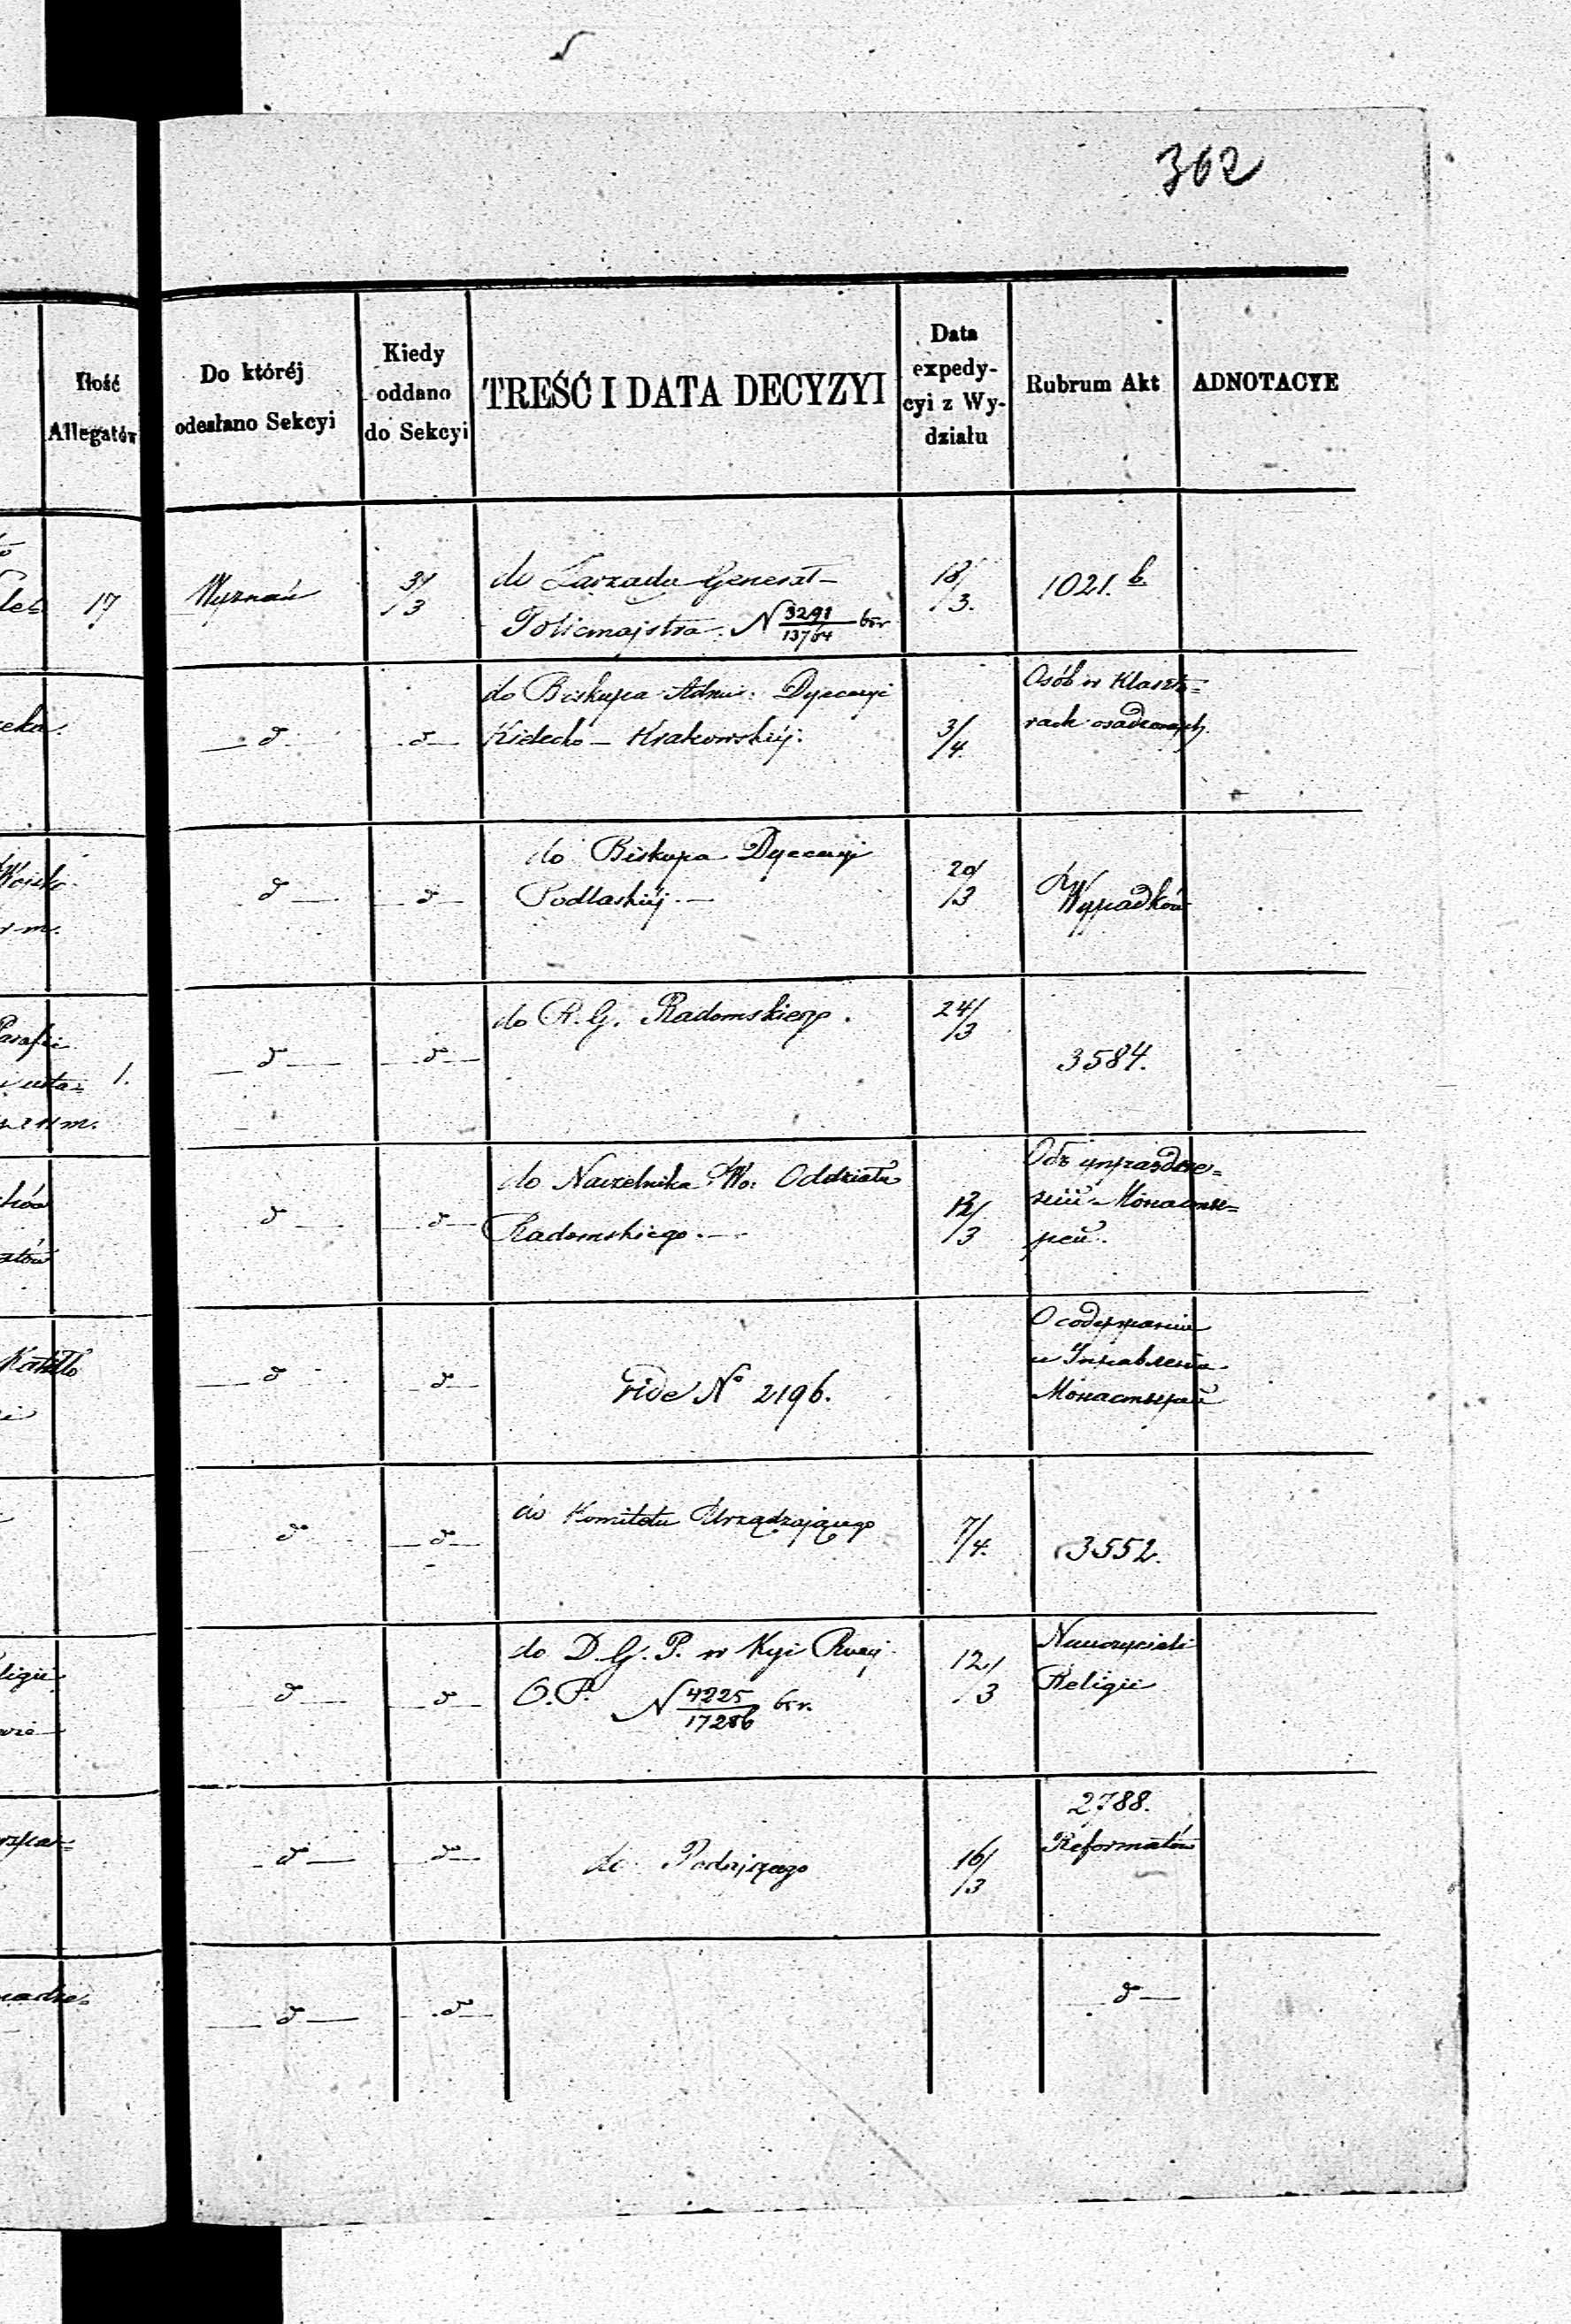 362
Ilość
Allegatów
Do któréj
odesłano Sekcyi
Kiedy
oddano
do Sekcyi
TREŚĆ I DATA DECYZYI
Data
expedy-
cyi z Wy-
działu
Rubrum Akt
ADNOTACYE
17
Wyznań
3/3
do Zarządu Generał-
Policmajstra. N 3291/13764
18/3.
1021. b.
do Biskupa Admi: Dyecezyi
Kielecko - Krakowskiéj.
3/4.
Osób w Klaszto=
rach osadzonych.
do Biskupa Dyecezyi
Podlaskiéj. —
20/3
Wypadków
Parafii
1.
do R. G. Radomskiego.
24/3
3584.
do Naczelnika Wo: Oddziału
Radomskiego. —
12/3
Объ упраздне=
нiи Монасты=
рей.
vide No 2196.
О содержанiи
и Управленiи
Монастырей
do Komitetu Urządzającego
7/4.
3552.
do D. G. P. w Kyi Rząj.
O. P. N 4225/17286
12/3
Nauczycieli
Religii
do Podającego
16/3
2788.
Reformatów